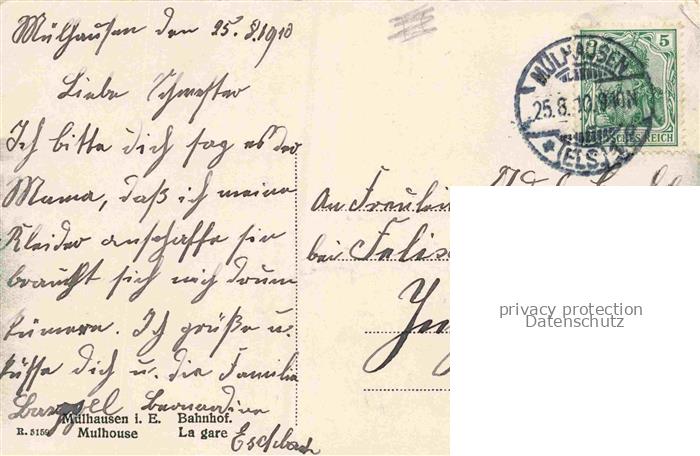 Mülhausen den 25.8.1910
Liebe Schwester
Ich bitte dich sag es der
Mama, daß ich meine
Kleider anschaffe sie
braucht sich nicht drum
kümern. Ich grüße u.
küsse dich u. die Familie
Bernardine
Eschbach
Mülhausen i. E. Bahnhof.
R. 5159 Mulhouse La gare
5
MÜLHAUSEN
25.8.10.
(ELS)
REICH
An Fräulein
bei
privacy protection
Datenschutz